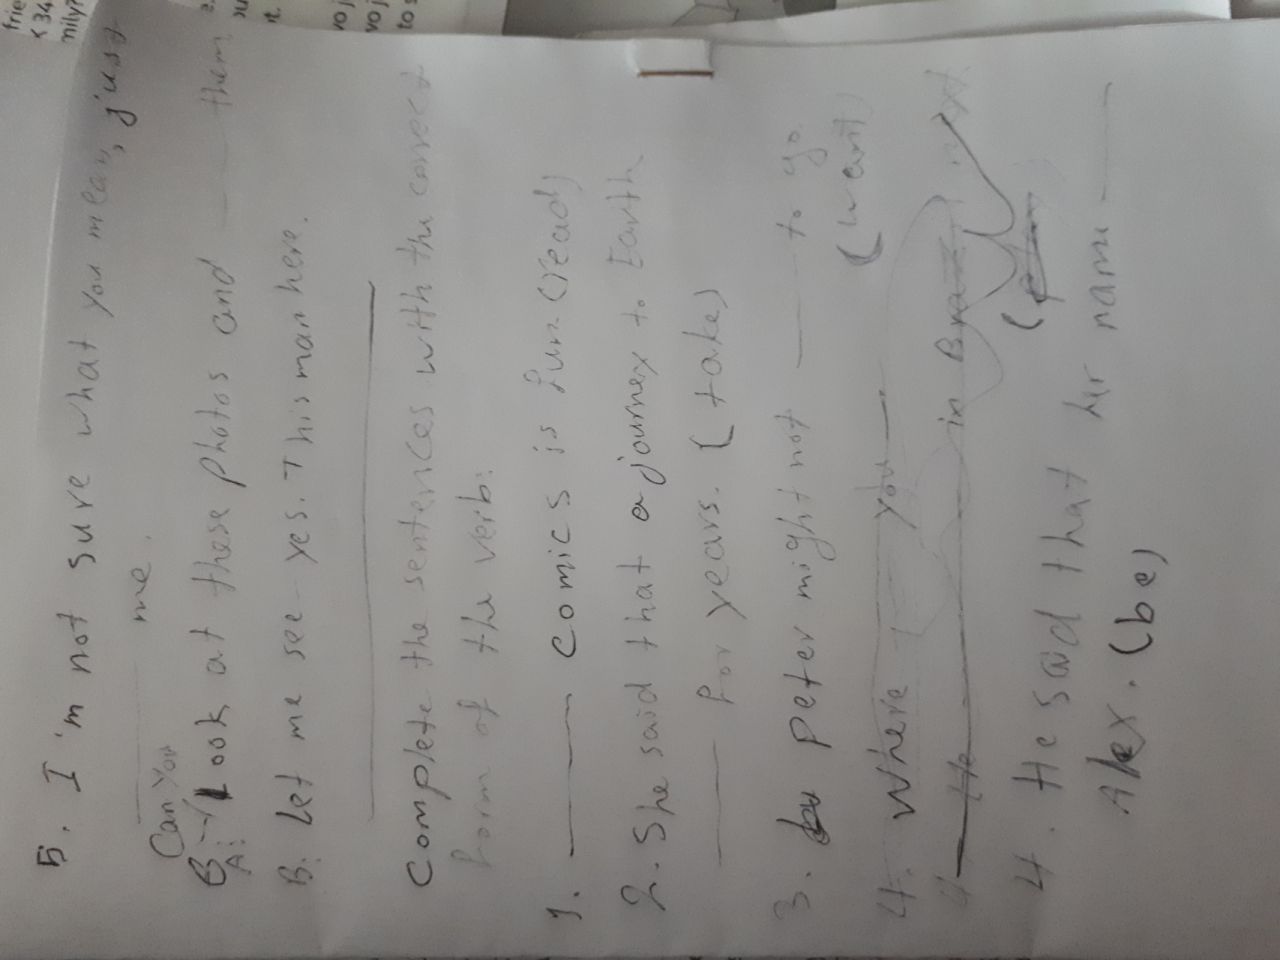 5. I'm not sure what you mean, just
me.
Can you
A: look at these photos and them
B. Let me see - yes. This man here.
Complete the sentences with the correct
form of the verb:
1. comics is fun (read)
2. She said that a journey to Earth
for years. (take)
3. peter might not to go.
(want)
4. Where you
4 He in
4. He said that her name
Alex. (be)